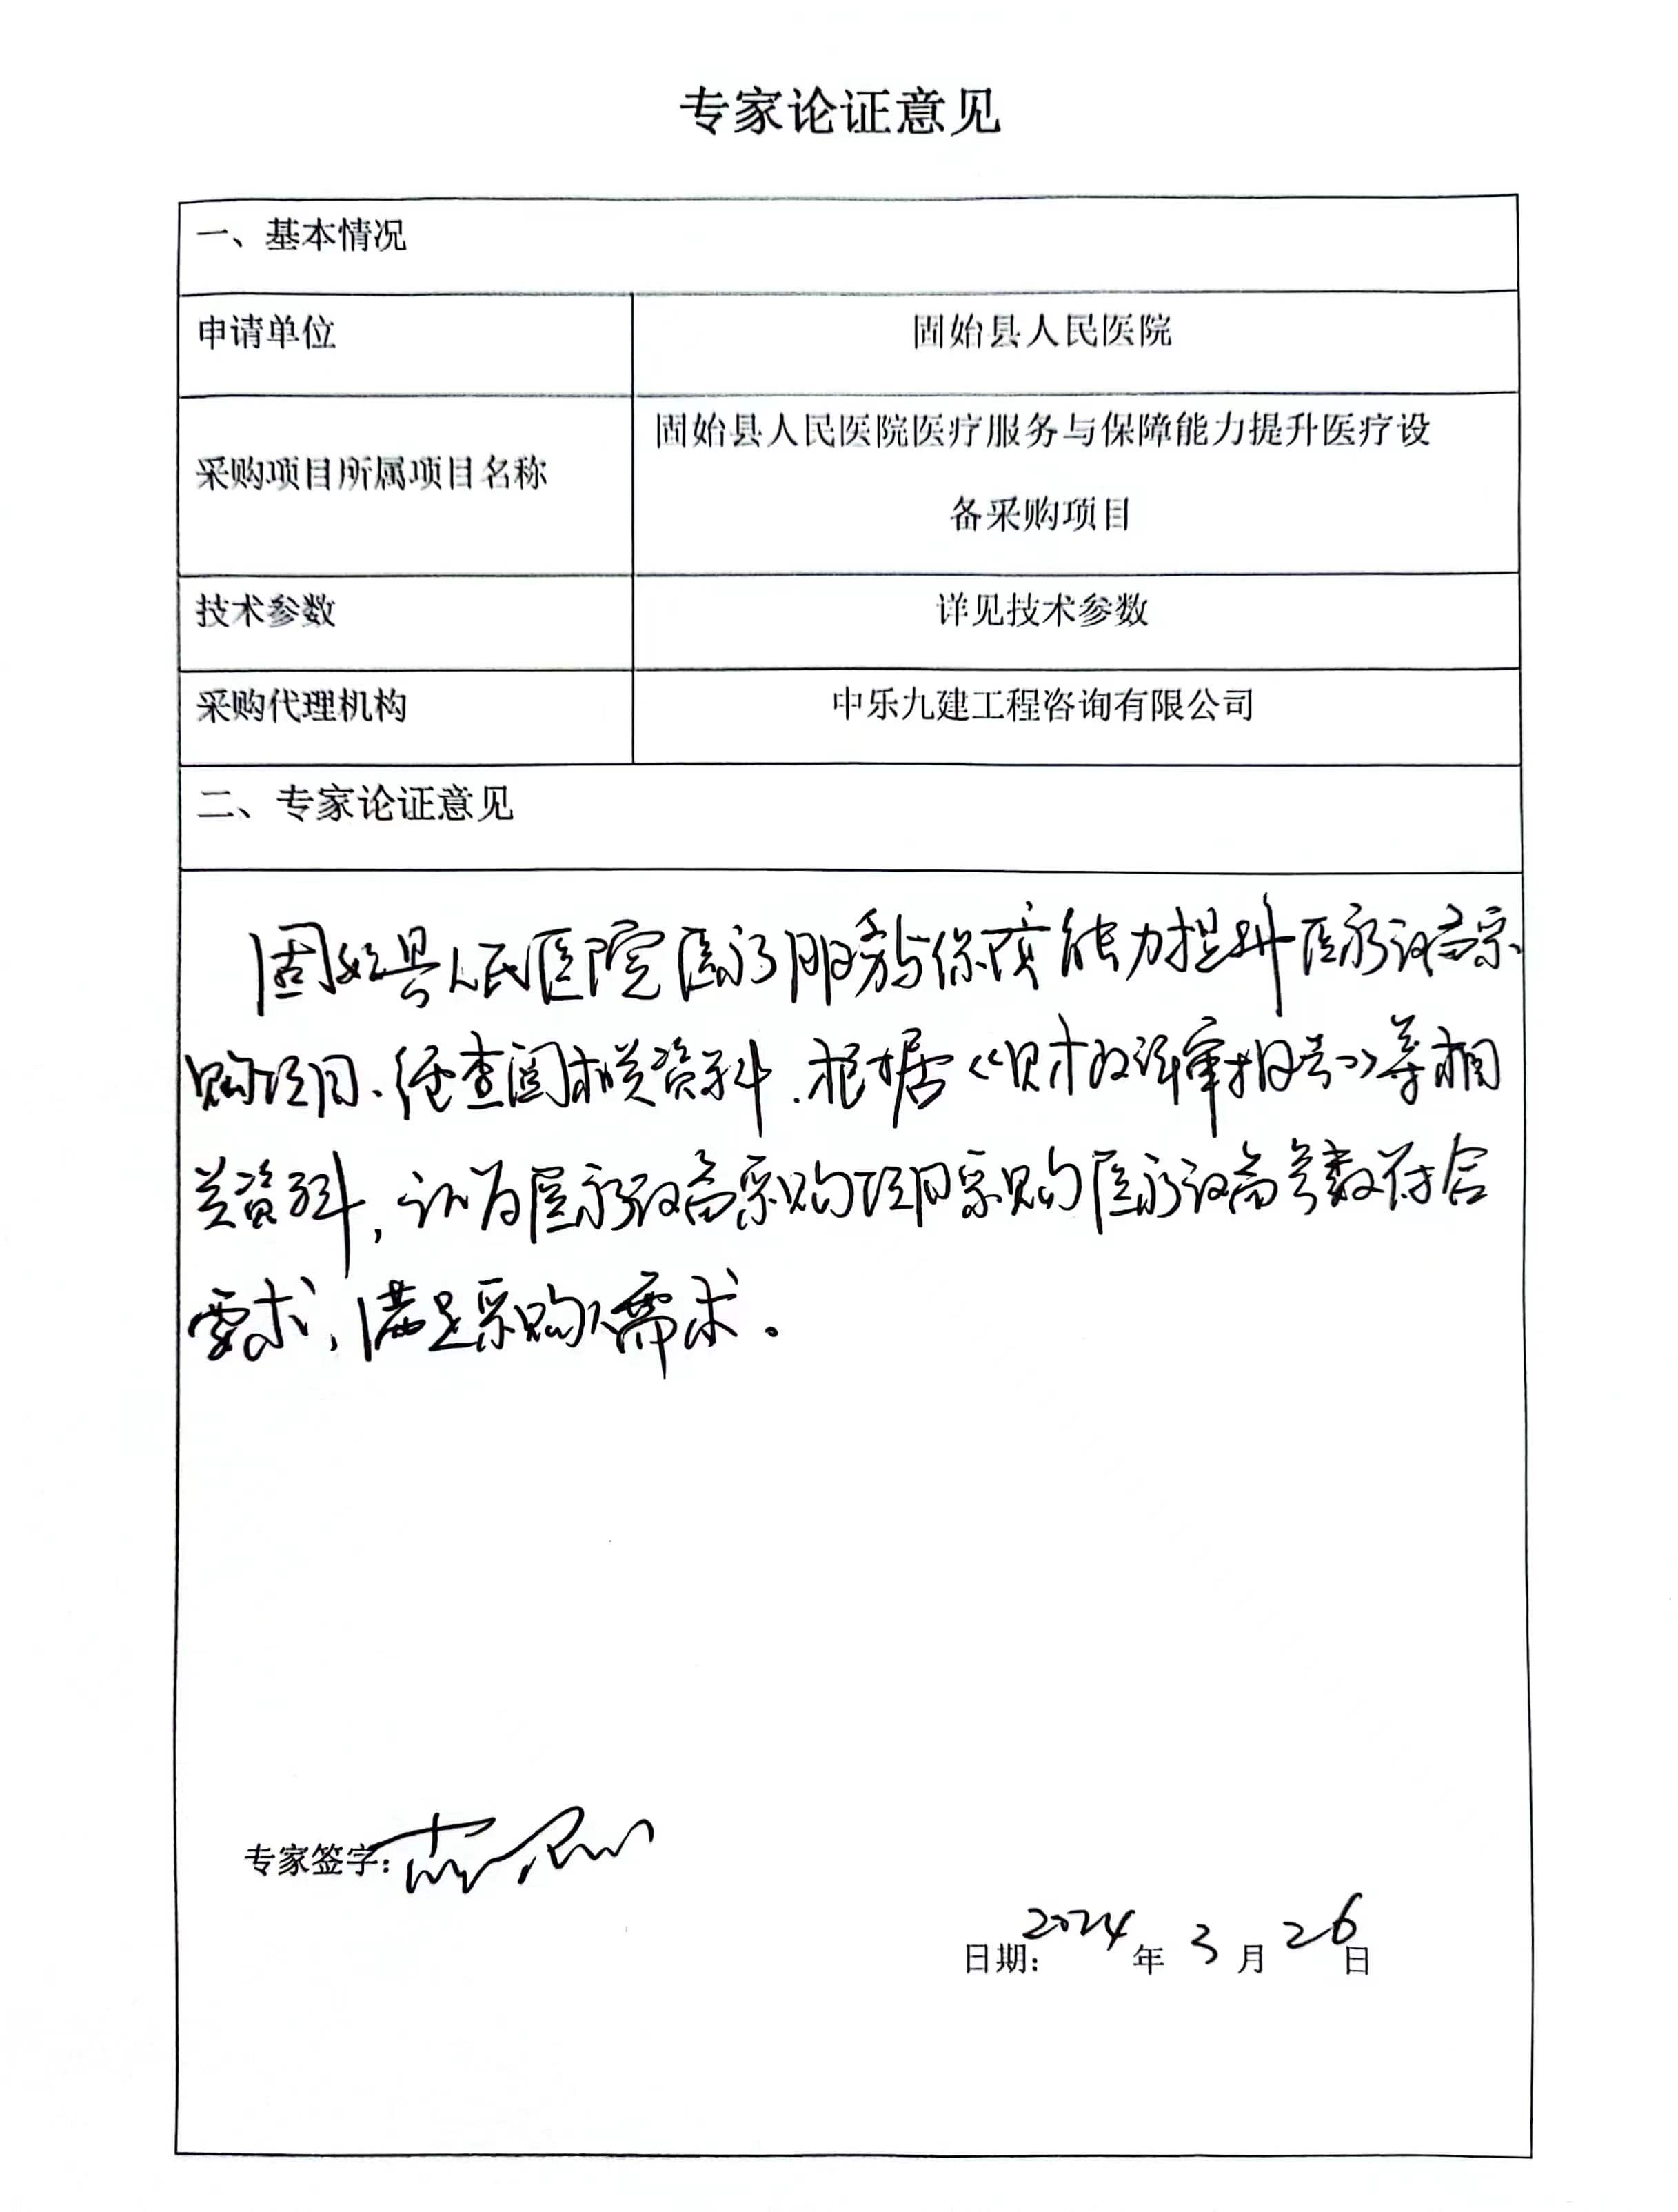 专家论证意见
一、基本情况
申请单位
固始县人民医院
采购项目所属项目名称
固始县人民医院医疗服务与保障能力提升医疗设
备采购项目
技术参数
详见技术参数
采购代理机构
中乐九建工程咨询有限公司
二、专家论证意见
固始县人民医院医疗服务与保障能力提升医疗设备采
购项目、经查阅相关资料.根据《财政评审报告》等相
关资料,认为医疗设备采购项目采购医疗设备参数符合
要求,满足采购需求。
专家签字:
日期:2024年3月26日